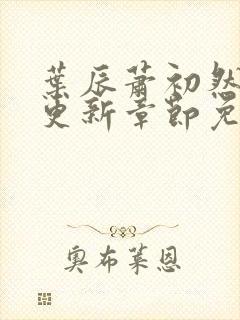 葉辰蕭初然
更新章節免
奧布萊恩